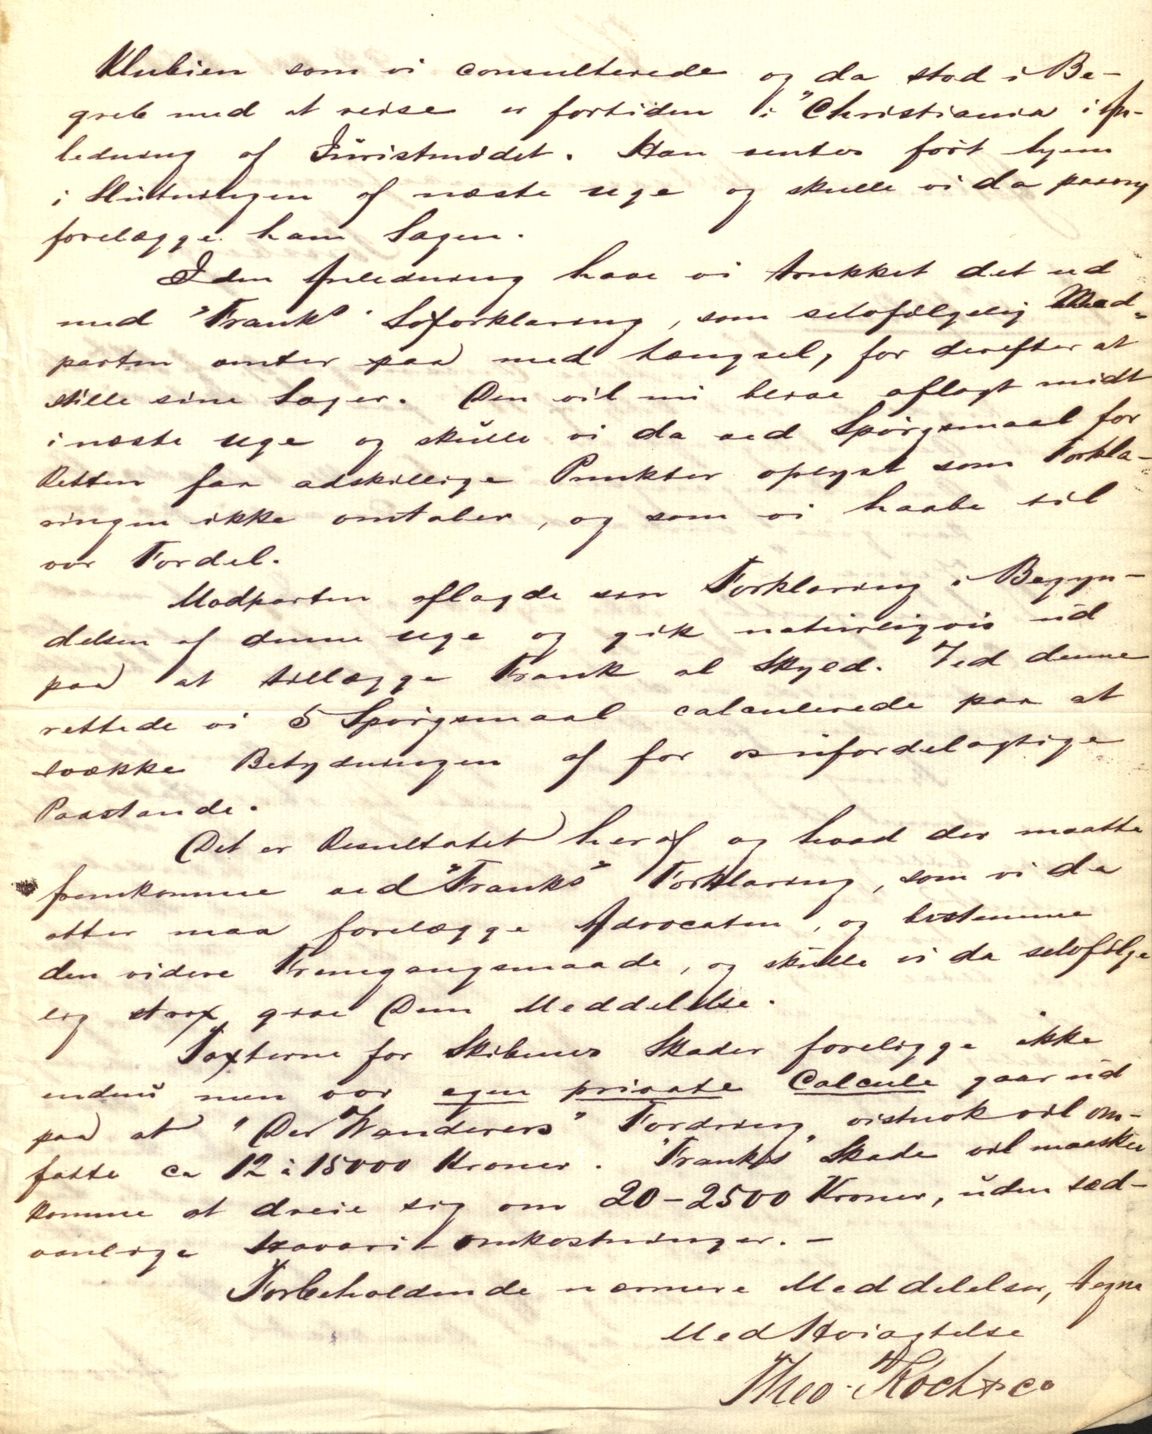 Klubien som vi consulterede og da stod i Be-
greb med at reise er fortiden i "Christiania i An-
ledning af Juristmødet. Han ventes først hjem
i Slutningen af næste uge og skulle vi da paany
forelægge ham Sagen.
I den Anledning have vi trukket det ud
med "Franks" Søforklaring, som selvfølgelig Mod-
parten venter paa med længsel, for derefter at
stille sine Sager. Den vil nu blive aflagt midt
i næste uge og skulle vi da ved Spørgsmaal for
Retten faa adskillige Punkter oplyst som Forkla-
ringen ikke omtaler, og som vi haabe til
vor Fordel.
Modparten aflagde sin Forklaring i Begyn-
delsen af denne uge og gik naturligvis ud
paa at tillægge Frank al Skyld. Ved denne
rettede vi 5 Spørgsmaal calculerede paa at
svække Betydningen af for os ufordelagtige
Paastande.
Det er Resultatet heraf og hvad der maatte
fremkomme ved "Franks" Forklaring, som vi da
atter maa forelægge Advocaten, og bestemme
den videre Fremgangsmaade, og skulle vi da selvfølge
lig strax give Dem Meddelelse.
Taxterne for Skibenes Skader foreligge ikke
endnu men vor egen private Calcule gaar ud
paa at "Der Wanderers" Fordring vistnok vil om-
fatte ca 12 à 15000 Kroner. "Franks" Skade vil maaskee
komme at dreie sig om 20-2500 Kroner, uden sæd-
vanlige Havari-omkostninger. -
Forbeholdende nærmere Meddelelser, tegne
Med Høiagtelse
Theo. Koch & co